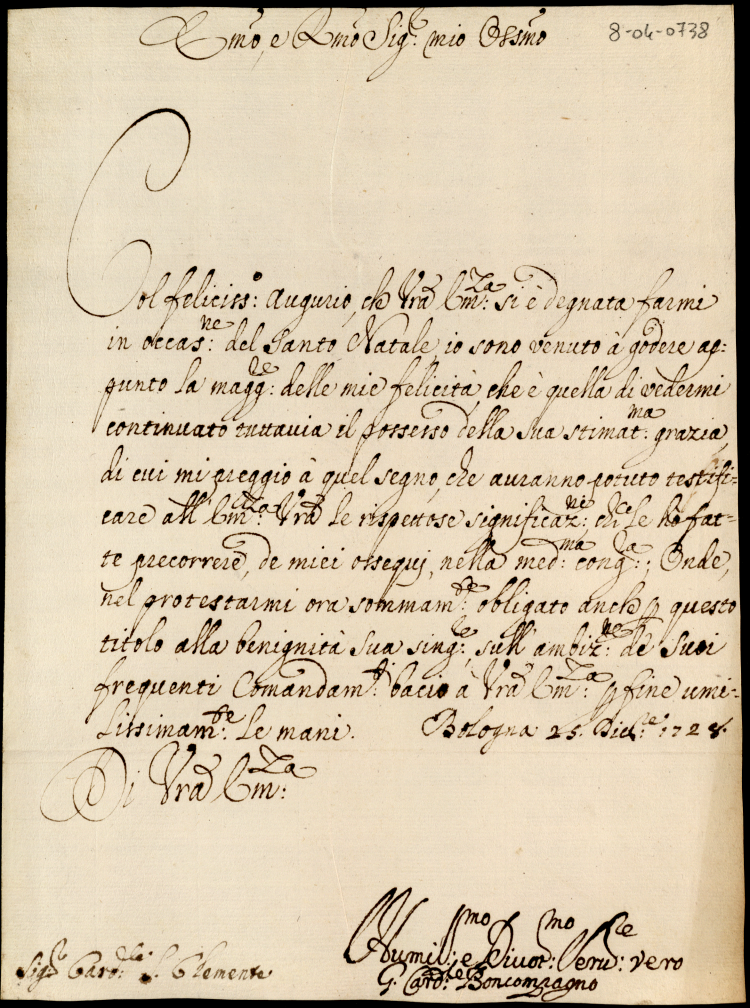 8-04-0738
Emo, e Rmo Sig.r mio Ossmo
Col feliciss:o augurio, che Vra Em:za si è degnata farmi
in occas:ne del Santo Natale, io sono venuto à godere ap:
punto la magg:re delle mie felicità, che è quella di vedermi
continuato tuttavia il possesso della sua stimat:ma grazia,
di cui mi preggio à quel segno, che auranno potuto testifi:
care all'Em:za Vra le rispettose significaz:ni che le hò fat:
te precorrere, de miei ossequj, nella med:ma cong:ra; Onde,
nel protestarmi ora sommam:te obligato anche p questo
titolo alla benignità sua sing:re, sull'ambiz:ne de suoi
frequenti Comandam:ti bacio à Vra Em:za p fine umi:
lissimam:te le mani. Bologna 25. Dic:re 1728.
Di Vra Em:za
Humil:mo e Divot:mo Seru:re vero
Sig.r Card:le S. Clemente
G. Card:le Boncompagno